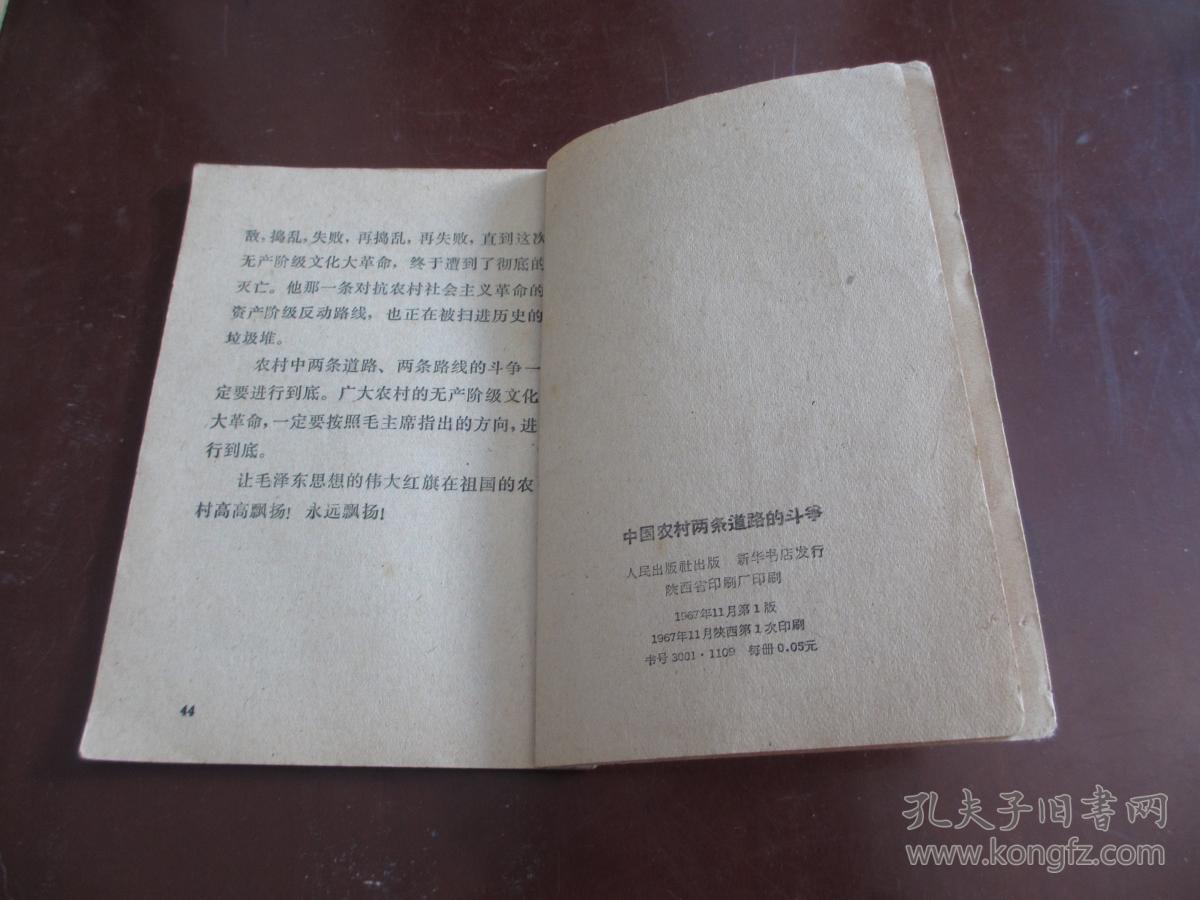 敌，捣乱，失败，再捣乱，再失败，直到这次
无产阶级文化大革命，终于遭到了彻底的
灭亡。他那一条对抗农村社会主义革命的
资产阶级反动路线，也正在被扫进历史的
垃圾堆。
农村中两条道路、两条路线的斗争一
定要进行到底。广大农村的无产阶级文化
大革命，一定要按照毛主席指出的方向，进
行到底。
让毛泽东思想的伟大红旗在祖国的农
村高高飘扬！永远飘扬！
44
中国农村两条道路的斗争
人民出版社出版 新华书店发行
陕西省印刷厂印刷
1967年11月第1版
1967年11月陕西第1次印刷
书号3001·1109 每册0.05元
孔夫子旧書网
www.kongfz.com